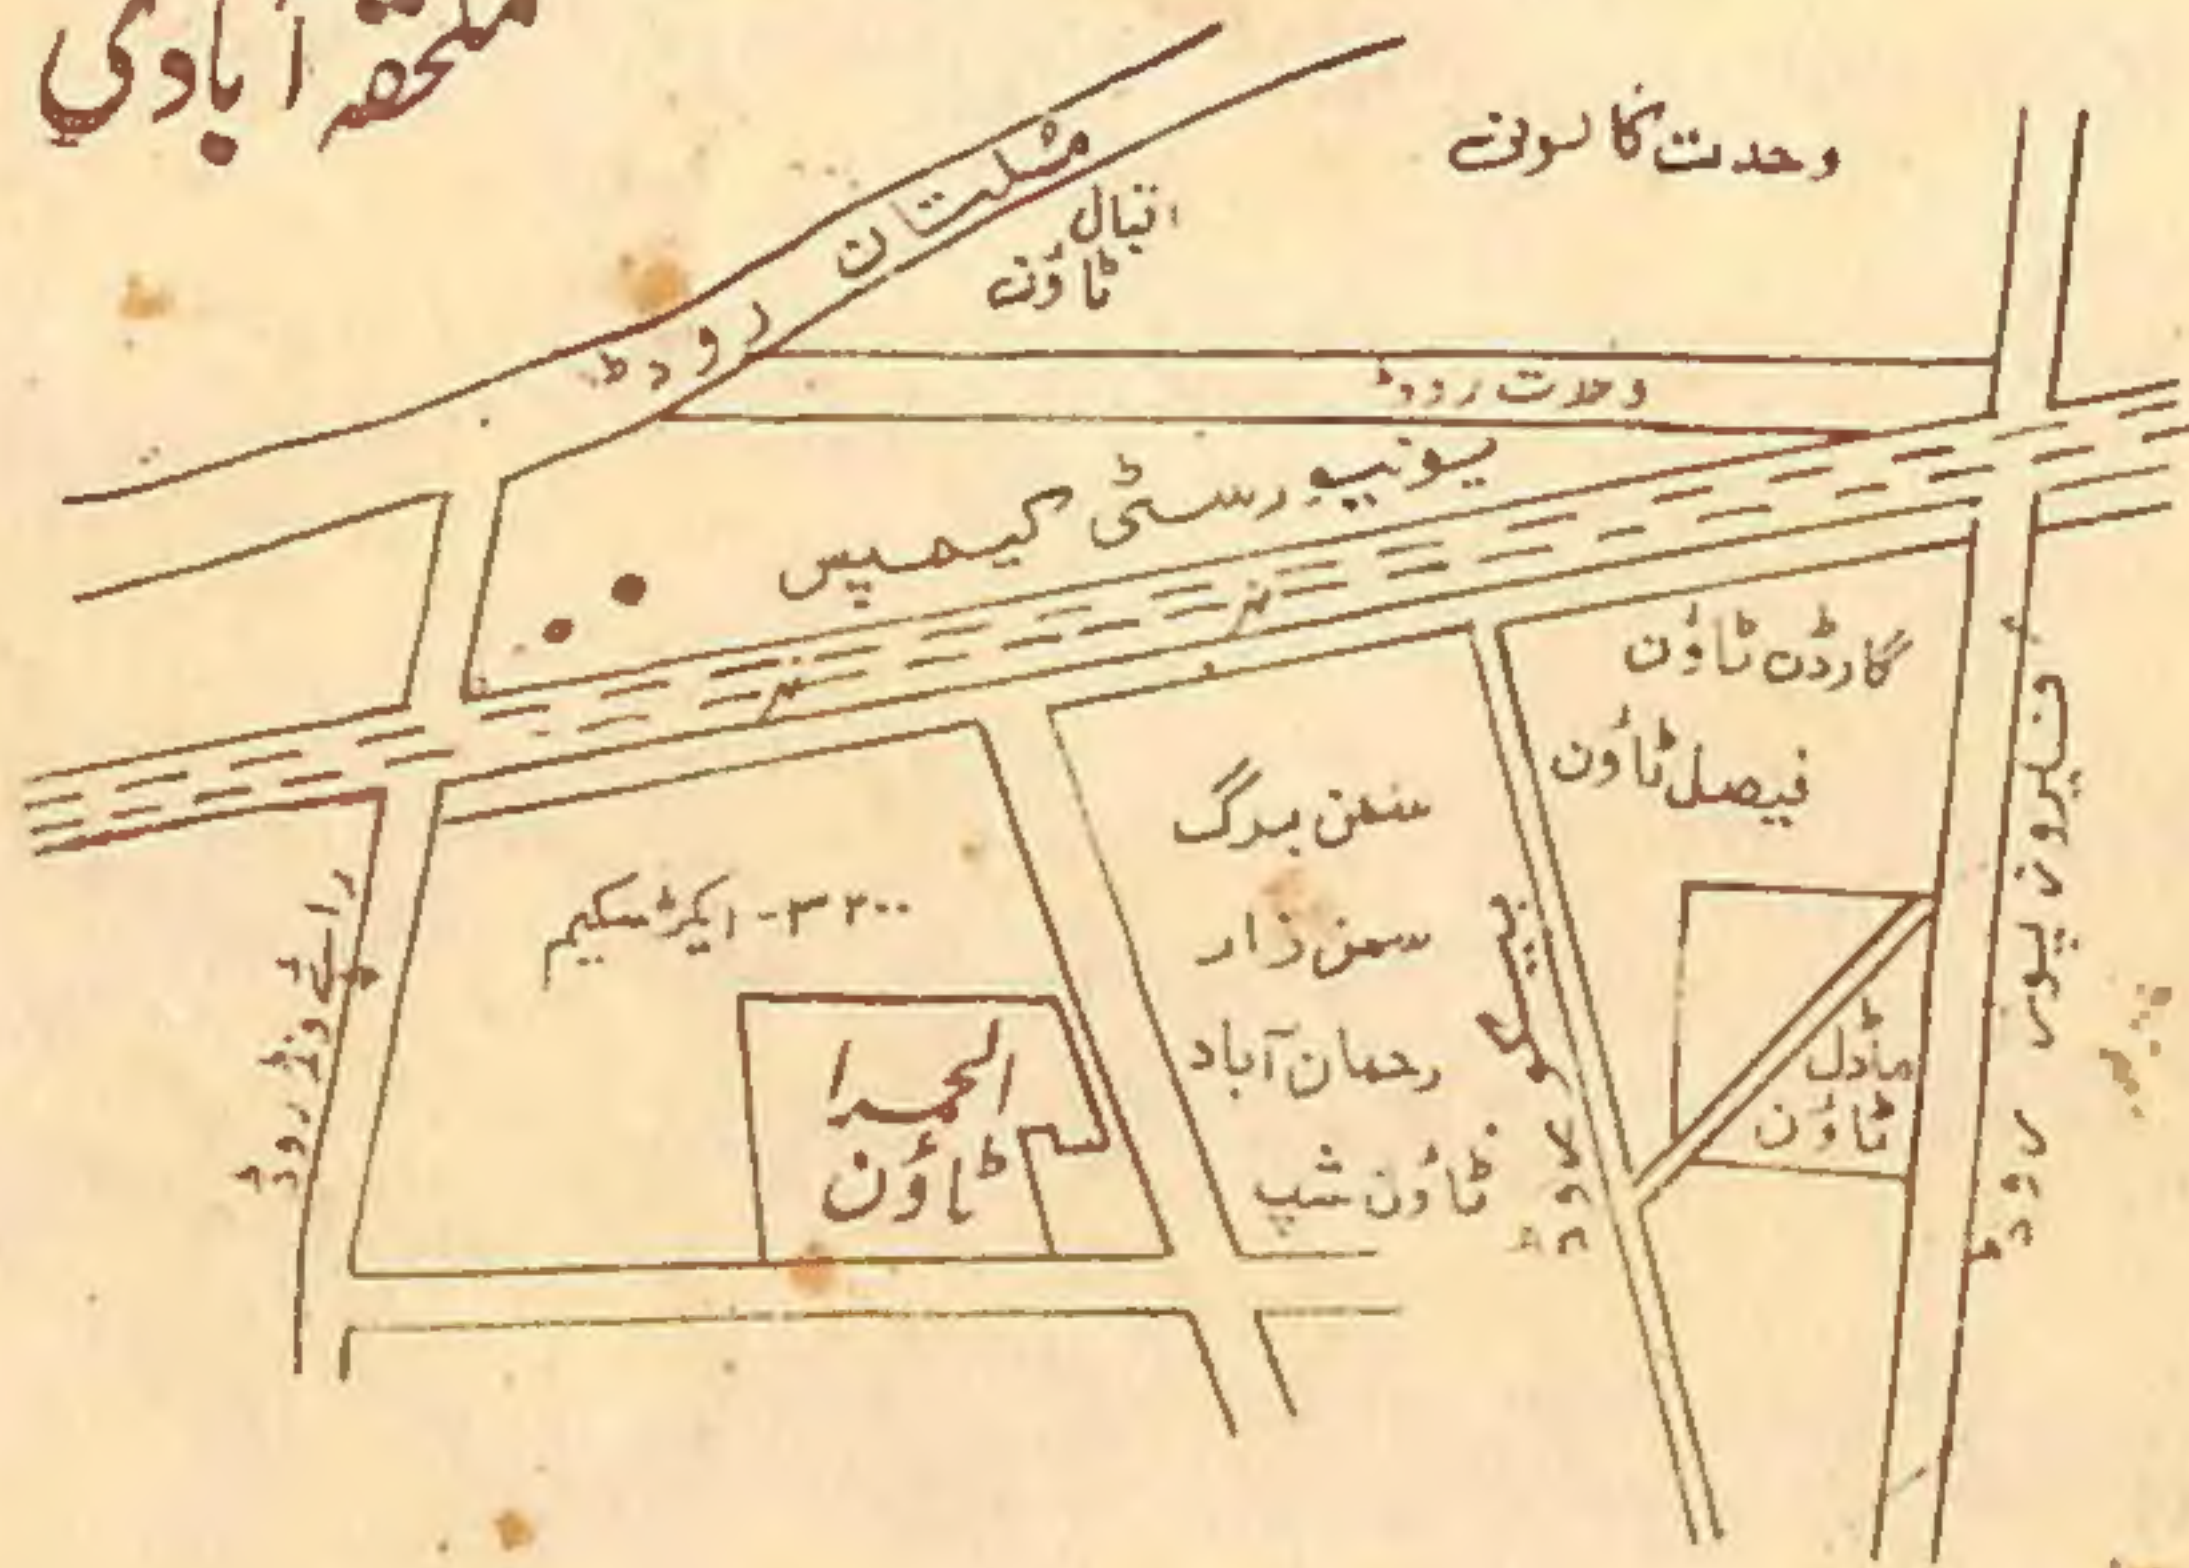 ملحقہ آبادی
وحدت کالونی
ملتان روڈ
اقبال
ٹاؤن
وحدت روڈ
یونیورسٹی کیمپس
نہر
نہر
گارڈن ٹاؤن
فیصل ٹاؤن
فیروز پور روڈ
ماڈل
ٹاؤن
پیکو روڈ
سمن برگ
سمن زار
رحمان آباد
ٹاؤن شپ
۳۲۰۰-ایکڑ سکیم
الحمرا
ٹاؤن
رائے ونڈ روڈ